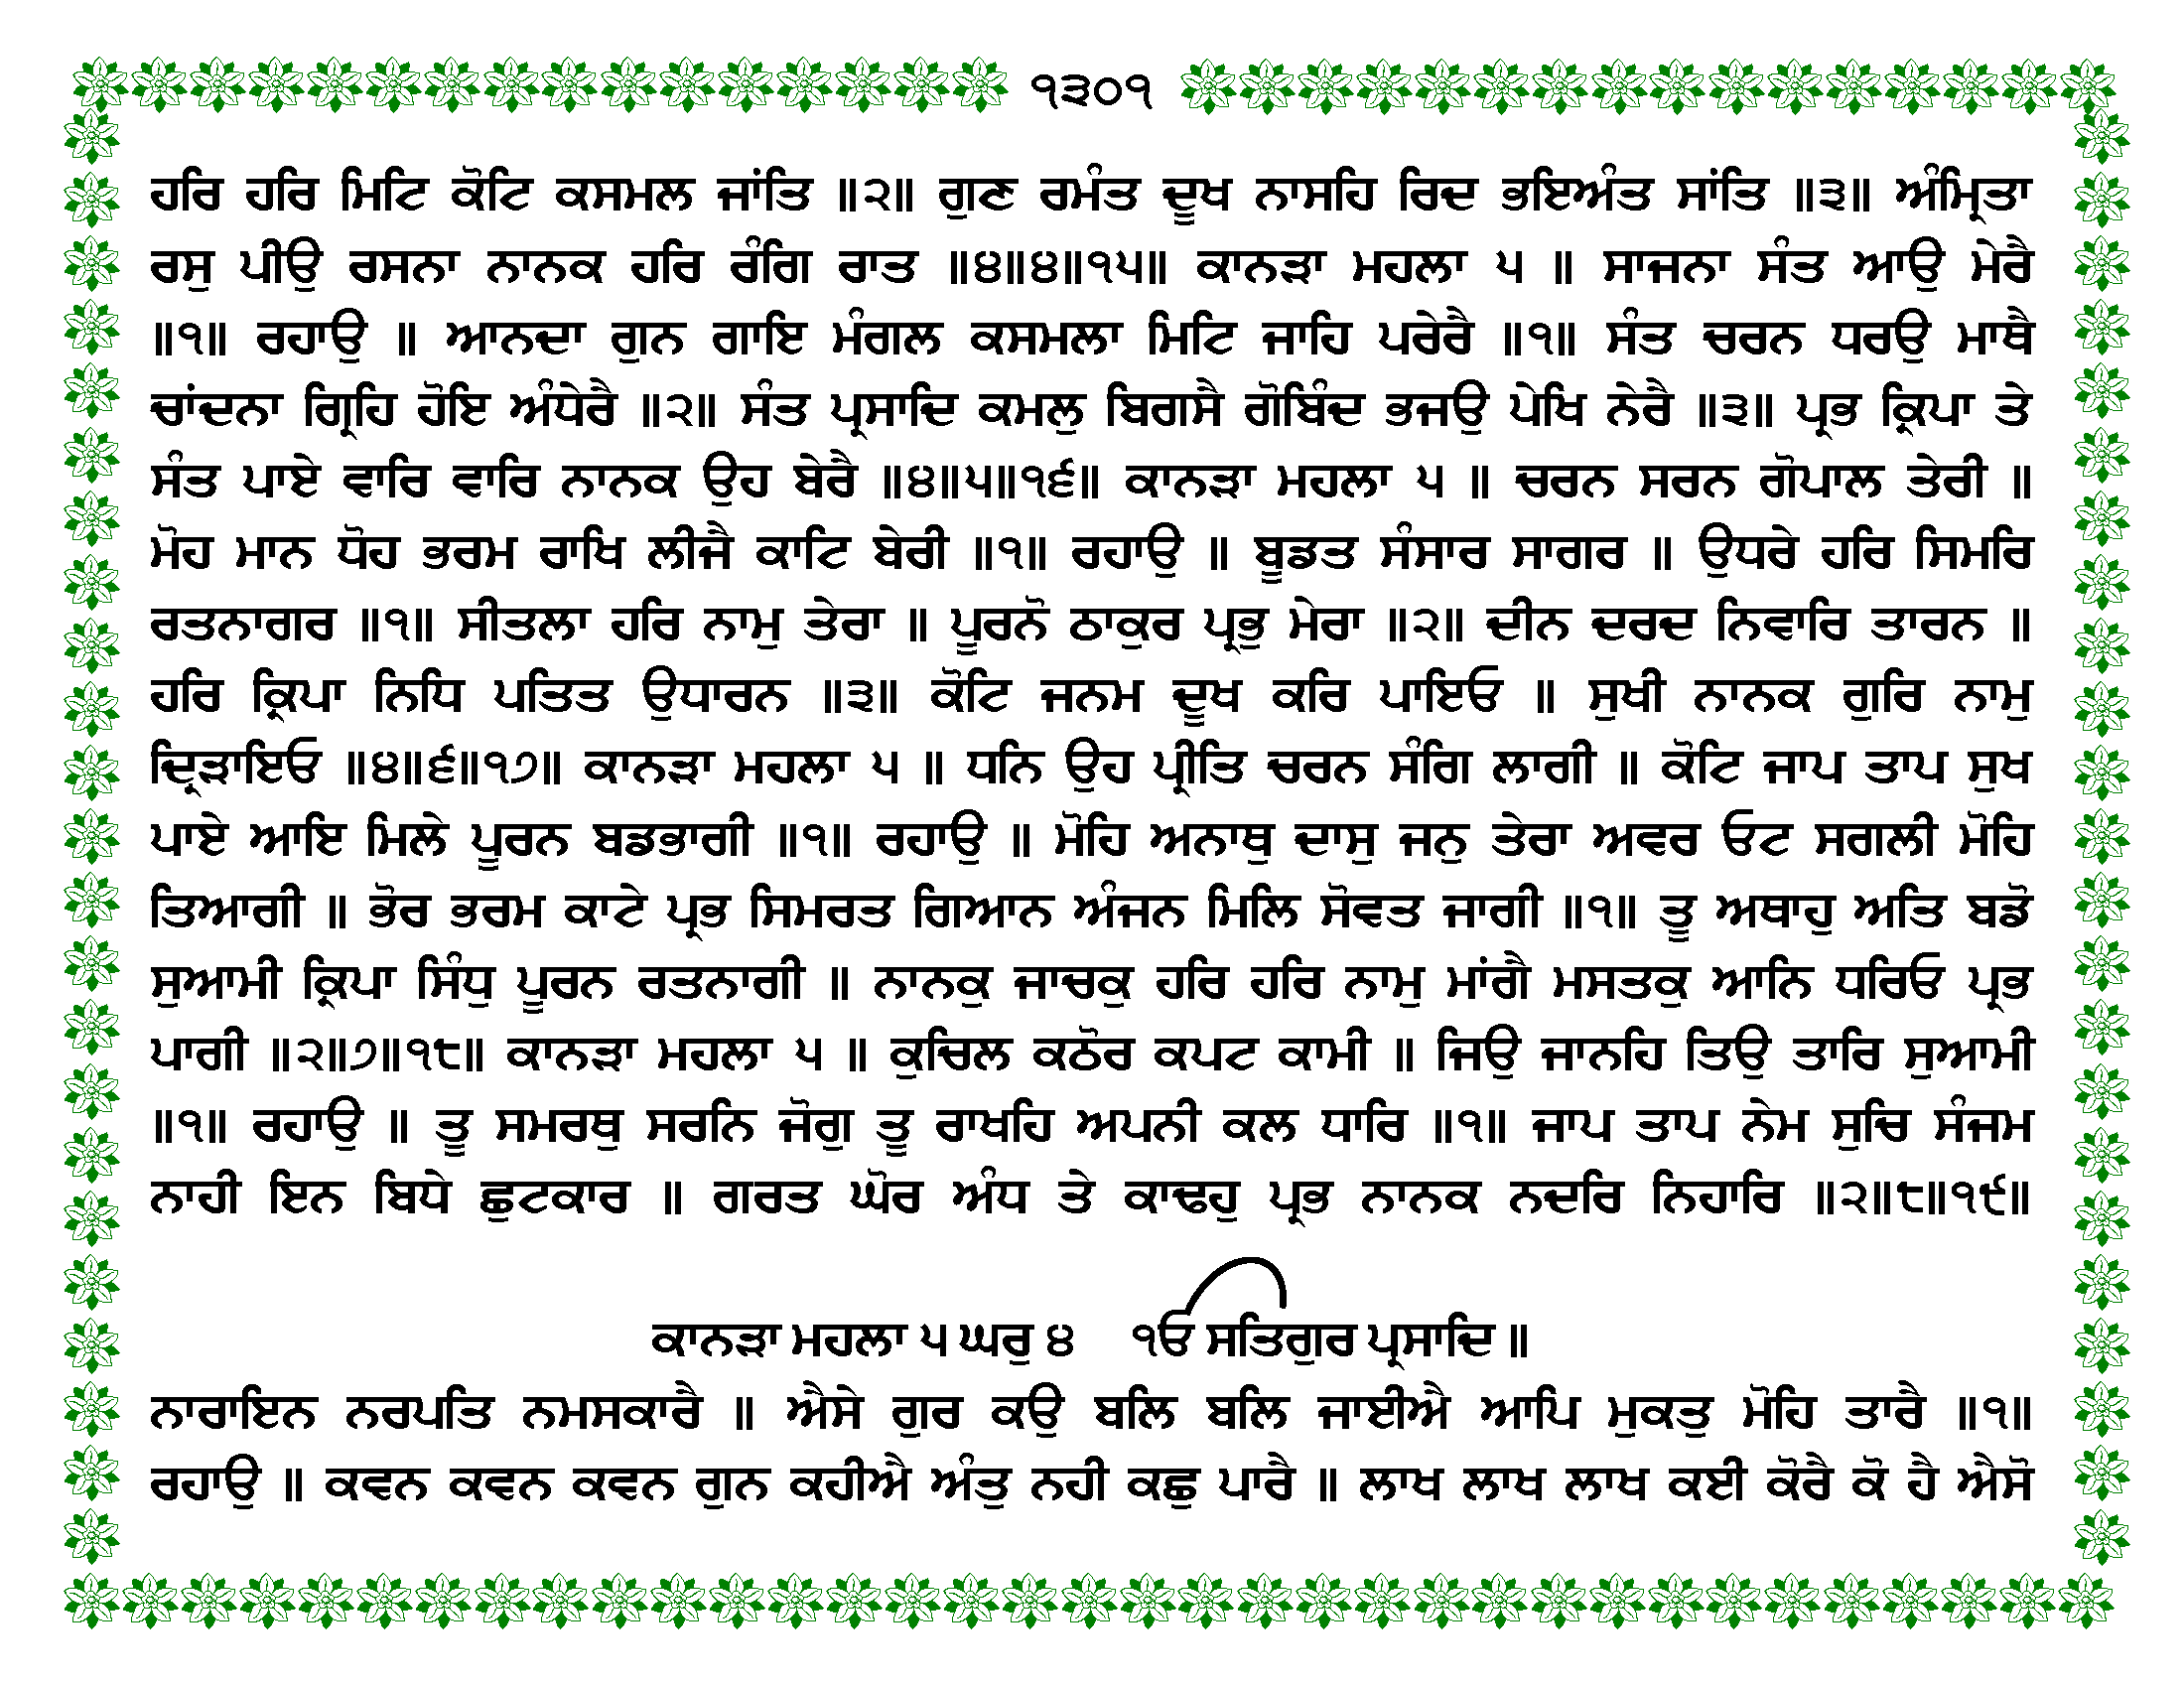 ੧੩੦੧
ਹਰਿ ਹਰਿ ਮਿਟਿ ਕੋਟਿ ਕਸਮਲ ਜਾਂਤਿ ॥੨॥ ਗੁਣ ਰਮੰਤ ਦੂਖ ਨਾਸਹਿ ਰਿਦ ਭਇਅੰਤ ਸਾਂਤਿ ॥੩॥ ਅੰਮ੍ਰਿਤਾ
ਰਸੁ ਪੀਉ ਰਸਨਾ ਨਾਨਕ ਹਰਿ ਰੰਗਿ ਰਾਤ ॥੪॥੪॥੧੫॥ ਕਾਨੜਾ ਮਹਲਾ ੫ ॥ ਸਾਜਨਾ ਸੰਤ ਆਉ ਮੇਰੈ
॥੧॥ ਰਹਾਉ ॥ ਆਨਦਾ ਗੁਨ ਗਾਇ ਮੰਗਲ ਕਸਮਲਾ ਮਿਟਿ ਜਾਹਿ ਪਰੇਰੈ ॥੧॥ ਸੰਤ ਚਰਨ ਧਰਉ ਮਾਥੈ
ਚਾਂਦਨਾ ਗ੍ਰਿਹਿ ਹੋਇ ਅੰਧੇਰੈ ॥੨॥ ਸੰਤ ਪ੍ਰਸਾਦਿ ਕਮਲੁ ਬਿਗਸੈ ਗੋਬਿੰਦ ਭਜਉ ਪੇਖਿ ਨੇਰੈ ॥੩॥ ਪ੍ਰਭ ਕ੍ਰਿਪਾ ਤੇ
ਸੰਤ ਪਾਏ ਵਾਰਿ ਵਾਰਿ ਨਾਨਕ ਉਹ ਬੇਰੈ ॥੪॥੫॥੧੬॥ ਕਾਨੜਾ ਮਹਲਾ ੫ ॥ ਚਰਨ ਸਰਨ ਗੋਪਾਲ ਤੇਰੀ ॥
ਮੋਹ ਮਾਨ ਧੋਹ ਭਰਮ ਰਾਖਿ ਲੀਜੈ ਕਾਟਿ ਬੇਰੀ ॥੧॥ ਰਹਾਉ ॥ ਬੂਡਤ ਸੰਸਾਰ ਸਾਗਰ ॥ ਉਧਰੇ ਹਰਿ ਸਿਮਰਿ
ਰਤਨਾਗਰ ॥੧॥ ਸੀਤਲਾ ਹਰਿ ਨਾਮੁ ਤੇਰਾ ॥ ਪੂਰਨੋ ਠਾਕੁਰ ਪ੍ਰਭੁ ਮੇਰਾ ॥੨॥ ਦੀਨ ਦਰਦ ਨਿਵਾਰਿ ਤਾਰਨ ॥
ਹਰਿ ਕ੍ਰਿਪਾ ਨਿਧਿ ਪਤਿਤ ਉਧਾਰਨ ॥੩॥ ਕੋਟਿ ਜਨਮ ਦੂਖ ਕਰਿ ਪਾਇਓ ॥ ਸੁਖੀ ਨਾਨਕ ਗੁਰਿ ਨਾਮੁ
ਦ੍ਰਿੜਾਇਓ ॥੪॥੬॥੧੭॥ ਕਾਨੜਾ ਮਹਲਾ ੫ ॥ ਧਨਿ ਉਹ ਪ੍ਰੀਤਿ ਚਰਨ ਸੰਗਿ ਲਾਗੀ ॥ ਕੋਟਿ ਜਾਪ ਤਾਪ ਸੁਖ
ਪਾਏ ਆਇ ਮਿਲੇ ਪੂਰਨ ਬਡਭਾਗੀ ॥੧॥ ਰਹਾਉ ॥ ਮੋਹਿ ਅਨਾਥੁ ਦਾਸੁ ਜਨੁ ਤੇਰਾ ਅਵਰ ਓਟ ਸਗਲੀ ਮੋਹਿ
ਤਿਆਗੀ ॥ ਭੋਰ ਭਰਮ ਕਾਟੇ ਪ੍ਰਭ ਸਿਮਰਤ ਗਿਆਨ ਅੰਜਨ ਮਿਲਿ ਸੋਵਤ ਜਾਗੀ ॥੧॥ ਤੂ ਅਥਾਹੁ ਅਤਿ ਬਡੋ
ਸੁਆਮੀ ਕ੍ਰਿਪਾ ਸਿੰਧੁ ਪੂਰਨ ਰਤਨਾਗੀ ॥ ਨਾਨਕੁ ਜਾਚਕੁ ਹਰਿ ਹਰਿ ਨਾਮੁ ਮਾਂਗੈ ਮਸਤਕੁ ਆਨਿ ਧਰਿਓ ਪ੍ਰਭ
ਪਾਗੀ ॥੨॥੭॥੧੮॥ ਕਾਨੜਾ ਮਹਲਾ ੫ ॥ ਕੁਚਿਲ ਕਠੋਰ ਕਪਟ ਕਾਮੀ ॥ ਜਿਉ ਜਾਨਹਿ ਤਿਉ ਤਾਰਿ ਸੁਆਮੀ
॥੧॥ ਰਹਾਉ ॥ ਤੂ ਸਮਰਥੁ ਸਰਨਿ ਜੋਗੁ ਤੂ ਰਾਖਹਿ ਅਪਨੀ ਕਲ ਧਾਰਿ ॥੧॥ ਜਾਪ ਤਾਪ ਨੇਮ ਸੁਚਿ ਸੰਜਮ
ਨਾਹੀ ਇਨ ਬਿਧੇ ਛੁਟਕਾਰ ॥ ਗਰਤ ਘੋਰ ਅੰਧ ਤੇ ਕਾਢਹੁ ਪ੍ਰਭ ਨਾਨਕ ਨਦਰਿ ਨਿਹਾਰਿ ॥੨॥੮॥੧੯॥
ਕਾਨੜਾ ਮਹਲਾ ੫ ਘਰੁ ੪ ੴ ਸਤਿਗੁਰ ਪ੍ਰਸਾਦਿ ॥
ਨਾਰਾਇਨ ਨਰਪਤਿ ਨਮਸਕਾਰੈ ॥ ਐਸੇ ਗੁਰ ਕਉ ਬਲਿ ਬਲਿ ਜਾਈਐ ਆਪਿ ਮੁਕਤੁ ਮੋਹਿ ਤਾਰੈ ॥੧॥
ਰਹਾਉ ॥ ਕਵਨ ਕਵਨ ਕਵਨ ਗੁਨ ਕਹੀਐ ਅੰਤੁ ਨਹੀ ਕਛੁ ਪਾਰੈ ॥ ਲਾਖ ਲਾਖ ਲਾਖ ਕਈ ਕੋਰੈ ਕੋ ਹੈ ਐਸੋ